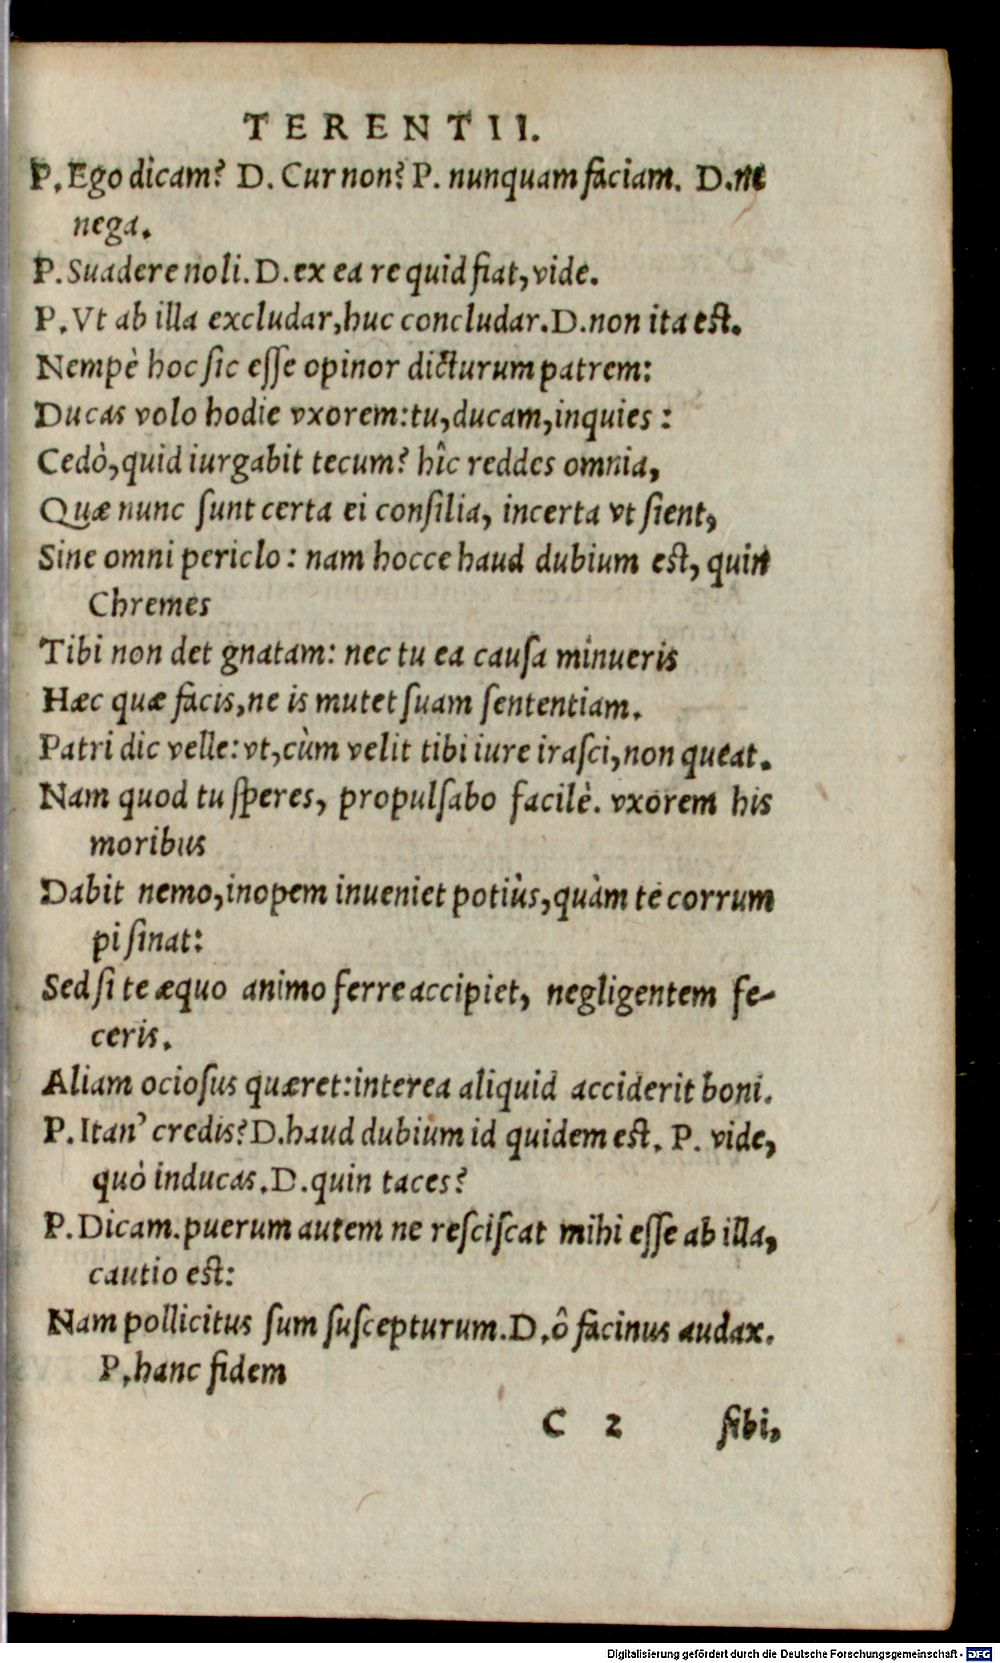 TERENTII.
P. Ego dicam? D. Cur non? P. nunquam faciam. D. ne
nega.
P. Suadere noli. D. ex ea re quid fiat, vide.
P. Vt ab illa excludar, huc concludar. D. non ita est.
Nempè hoc sic esse opinor dicturum patrem:
Ducas volo hodie vxorem: tu, ducam, inquies:
Cedò, quid iurgabit tecum? hîc reddes omnia,
Quæ nunc sunt certa ei consilia, incerta vt sient,
Sine omni periclo: nam hocce haud dubium est, quin
Chremes
Tibi non det gnatam: nec tu ea causa minueris
Hæc quæ facis, ne is mutet suam sententiam.
Patri dic velle: vt, cùm velit tibi iure irasci, non queat.
Nam quod tu speres, propulsabo facilè. vxorem his
moribus
Dabit nemo, inopem inueniet potiùs, quàm te corrum
pi sinat:
Sed si te æquo animo ferre accipiet, negligentem fe-
ceris.
Aliam ociosus quæret: interea aliquid acciderit boni.
P. Itan' credis? D. haud dubium id quidem est. P. vide,
quò inducas. D. quin taces?
P. Dicam. puerum autem ne resciscat mihi esse ab illa,
cautio est:
Nam pollicitus sum suscepturum. D. ô facinus audax.
P. hanc fidem
C 2 sibi,
Digitalisierung gefördert durch die Deutsche Forschungsgemeinschaft - DFG